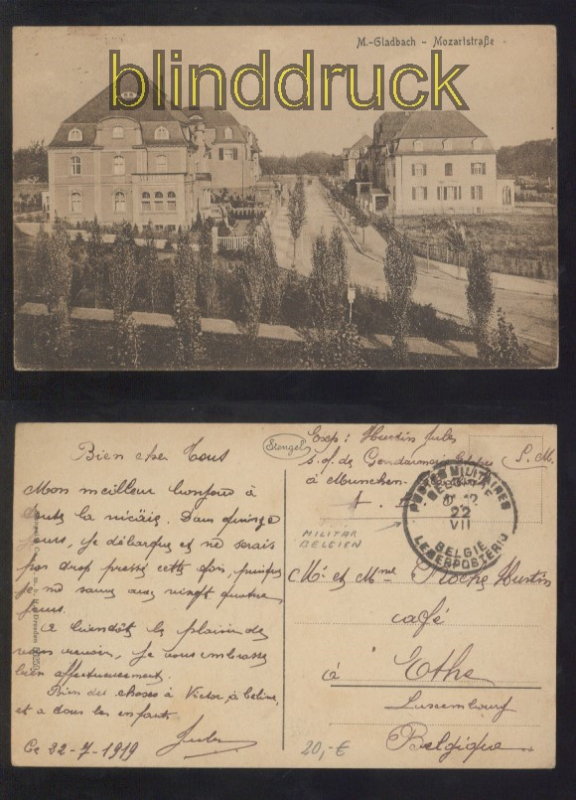 M.-Gladbach - Mozartstraße
blinddruck
Bien cher Tous
Mon meilleur bonjour à
toute la Dans quinze
jours, je débarque et ne serais
pas trop pressé cette fois, puisque
je ne saurai aux vingt quatre
jours.
A bientôt le plaisir de
vous revoir, je vous embrasse
bien affectueusement.
Bien des choses à Victor à Celine,
et a tous les enfants.
Ce 22-7-1919 Jules
Stengel
Exp: Hustin Jules
s.of. de Gendarmerie
à Munchen
S. M.
POSTES MILITAIRES
BELGIQUE
22
VII
BELGIE
LEGERPOSTERIJ
MILITÄR
BELGIEN
Mr et Mme Hustin
café
à Ethe
Luxembourg
Belgique
20,-€